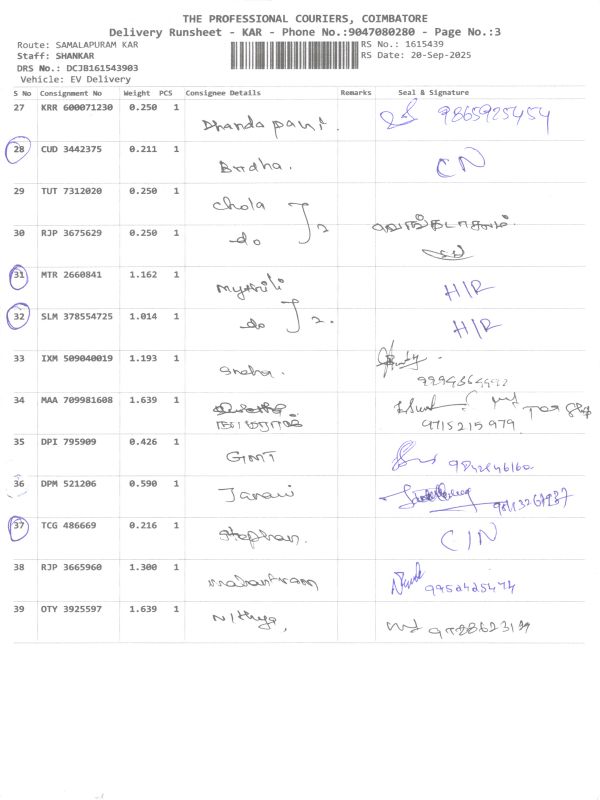 THE PROFESSIONAL COURIERS, COIMBATORE
Delivery Runsheet - KAR - Phone No.:9047080280 - Page No.:3
Route: SAMALAPURAM KAR RS No.: 1615439
Staff: SHANKAR RS Date: 20-Sep-2025
DRS No.: DCJB161543903
Vehicle: EV Delivery
S No Consignment No Weight PCS Consignee Details Remarks Seal & Signature
27 KRR 600071230 0.250 1 Dhandapani. 9865925454
28 CUD 3442375 0.211 1 CN
29 TUT 7312020 0.250 1 Chola
30 RJP 3675629 0.250 1 do 2
31 MTR 2660841 1.162 1 Mythili H/R
32 SLM 378554725 1.014 1 do 2. H/R
33 IXM 509040019 1.193 1 Sneha.
34 MAA 709981608 1.639 1 9715215979
35 DPI 795909 0.426 1 GMT
36 DPM 521206 0.590 1 Janani
37 TCG 486669 0.216 1 Stephan. C/N
38 RJP 3665960 1.300 1
39 OTY 3925597 1.639 1 Nithya,